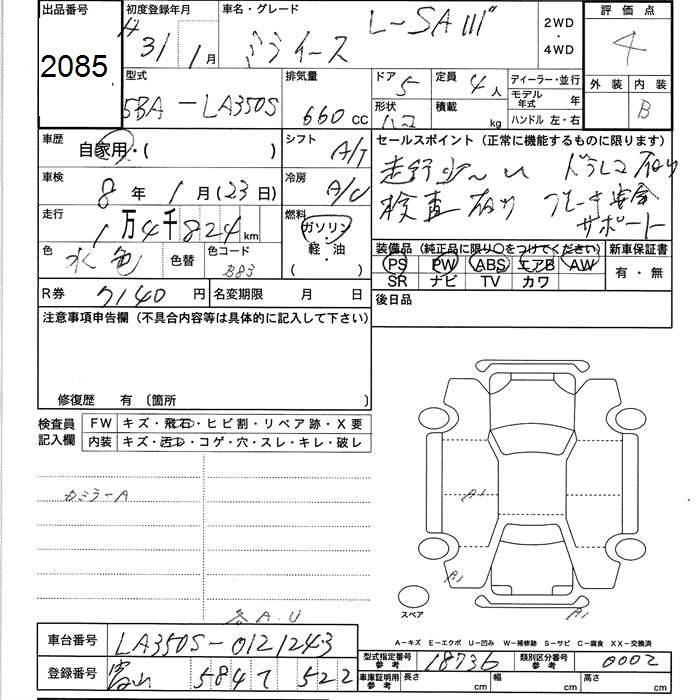 出品番号 初度登録年月 車名・グレード 2WD・4WD 評価点
2085 H 31年 1月 ミライース L-SAⅢ 4
型式 排気量 ドア 5 定員 4人 ディーラー・並行 外装 内装
5BA-LA350S 660cc 形状 ハコ 積載 kg モデル年式 年 B
ハンドル 左・右
車歴 自家用・( ) シフト A/T セールスポイント(正常に機能するものに限ります)
車検 8年 1月(23日) 冷房 A/C 走行少ない ドラレコ有り
検査有り ブレーキ安全
サポート
走行 1万4千824km 燃料 ガソリン
軽・油
( )
色 水色 色替 色コード B83
装備品(純正品に限り○をつけてください) 新車保証書
PS PW ABS エアB AW 有・無
SR ナビ TV カワ
R券 7140円 名変期限 月 日 後日品
注意事項申告欄(不具合内容等は具体的に記入して下さい)
修復歴 有〔箇所 〕
検査員記入欄 FW キズ・飛石・ヒビ割・リペア跡・X要
内装 キズ・汚レ・コゲ・穴・スレ・キレ・破レ
カミラーA
A1
A1
A1
スペア
各A.U
A-キズ E-エクボ U-凹み W-補修跡 S-サビ C-腐食 XX-交換済
車台番号 LA350S-0121243 型式指定番号参考 18736 類別区分番号参考 0002
登録番号 富山 584 522 車庫証明用参考 長さ cm 幅 cm 高さ cm